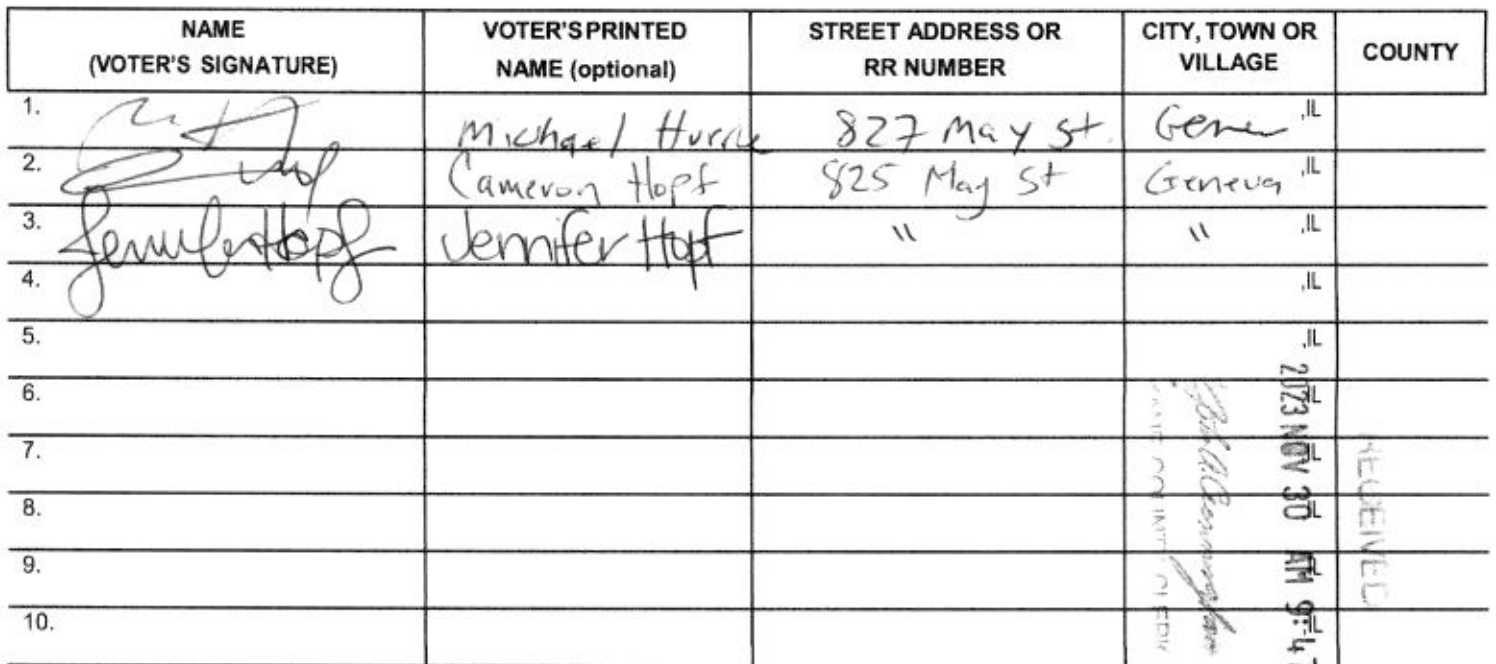 NAME
(VOTER'S SIGNATURE)
VOTER'S PRINTED
NAME (optional)
STREET ADDRESS OR
RR NUMBER
CITY, TOWN OR
VILLAGE
COUNTY
1. Michael 827 May St. ,IL
2. Cameron Hopf 825 May St Geneva ,IL
3. Jennifer Hopf Jennifer Hopf " " ,IL
4. ,IL
5. ,IL
6. ,IL
7. ,IL
8. ,IL
9. ,IL
10. ,IL
2023 NOV 30 AM 9:4
RECEIVED